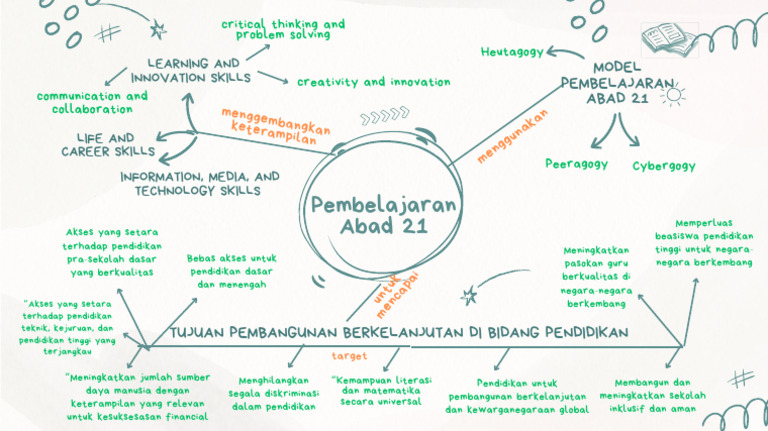 critical thinking and
problem solving
LEARNING AND
INNOVATION SKILLS
creativity and innovation
communication and
collaboration
menggembangkan
keterampilan
LIFE AND
CAREER SKILLS
INFORMATION, MEDIA, AND
TECHNOLOGY SKILLS
Heutagogy
MODEL
PEMBELAJARAN
ABAD 21
menggunakan
Peeragogy
Cybergogy
Pembelajaran
Abad 21
untuk
mencapai
Akses yang setara
terhadap pendidikan
pra-sekolah dasar
yang berkualitas
Bebas akses untuk
pendidikan dasar
dan menengah
Meningkatkan
pasokan guru
berkualitas di
negara-negara
berkembang
Memperluas
beasiswa pendidikan
tinggi untuk negara-
negara berkembang
"Akses yang setara
terhadap pendidikan
teknik, kejuruan, dan
pendidikan tinggi yang
terjangkau
TUJUAN PEMBANGUNAN BERKELANJUTAN DI BIDANG PENDIDIKAN
target
"Meningkatkan jumlah sumber
daya manusia dengan
keterampilan yang relevan
untuk kesuksesasan financial
Menghilangkan
segala diskriminasi
dalam pendidikan
"Kemampuan literasi
dan matematika
secara universal
Pendidikan untuk
pembangunan berkelanjutan
dan kewarganegaraan global
Membangun dan
meningkatkan sekolah
inklusif dan aman